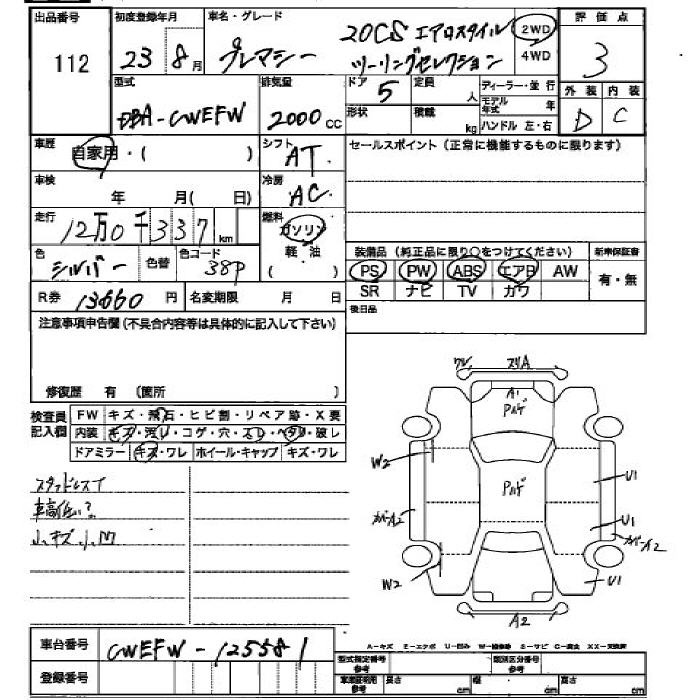 出品番号 初度登録年月 車名・グレード 評価点
112 23 8月 プレマシー 20CS エアロスタイル ツーリングセレクション 2WD 4WD 3
型式 排気量 ドア 5 定員 人 ディーラー・並行 外装 内装
DBA-CWEFW 2000cc 形状 積載 kg モデル年式 年 ハンドル 左・右 D C
車歴 自家用・( ) シフト AT セールスポイント(正常に機能するものに限ります)
車検 年 月( 日) 冷房 AC
走行 12万0千337km 燃料 ガソリン 軽油 ( )
色 シルバー 色替 色コード 38P
装備品(純正品に限り○をつけてください) 新車保証書
PS PW ABS エアB AW 有・無
SR ナビ TV カワ
R券 13660円 名変期限 月 日 後日品
注意事項申告欄(不具合内容等は具体的に記入して下さい)
修復歴 有 (箇所 )
検査員記入欄 FW キズ・飛石・ヒビ割・リペア跡・X要
内装 キズ・汚レ・コゲ・穴・スレ・ヘタリ・破レ
ドアミラー キズ・ワレ ホイール・キャップ キズ・ワレ
スタッドレスT
車高低い?
小キズ.小凹
ワレ スリA
A1
Pハゲ
W2 Pハゲ U1
カバーA2 U1 カバーA2
W2 U1
A2
A-キズ E-エクボ U-凹み W-補修跡 S-サビ C-腐食 XX-交換済
車台番号 CWEFW-125581
登録番号
型式指定番号 参考 類別区分番号 参考
車庫証明用参考 長さ cm 幅 cm 高さ cm